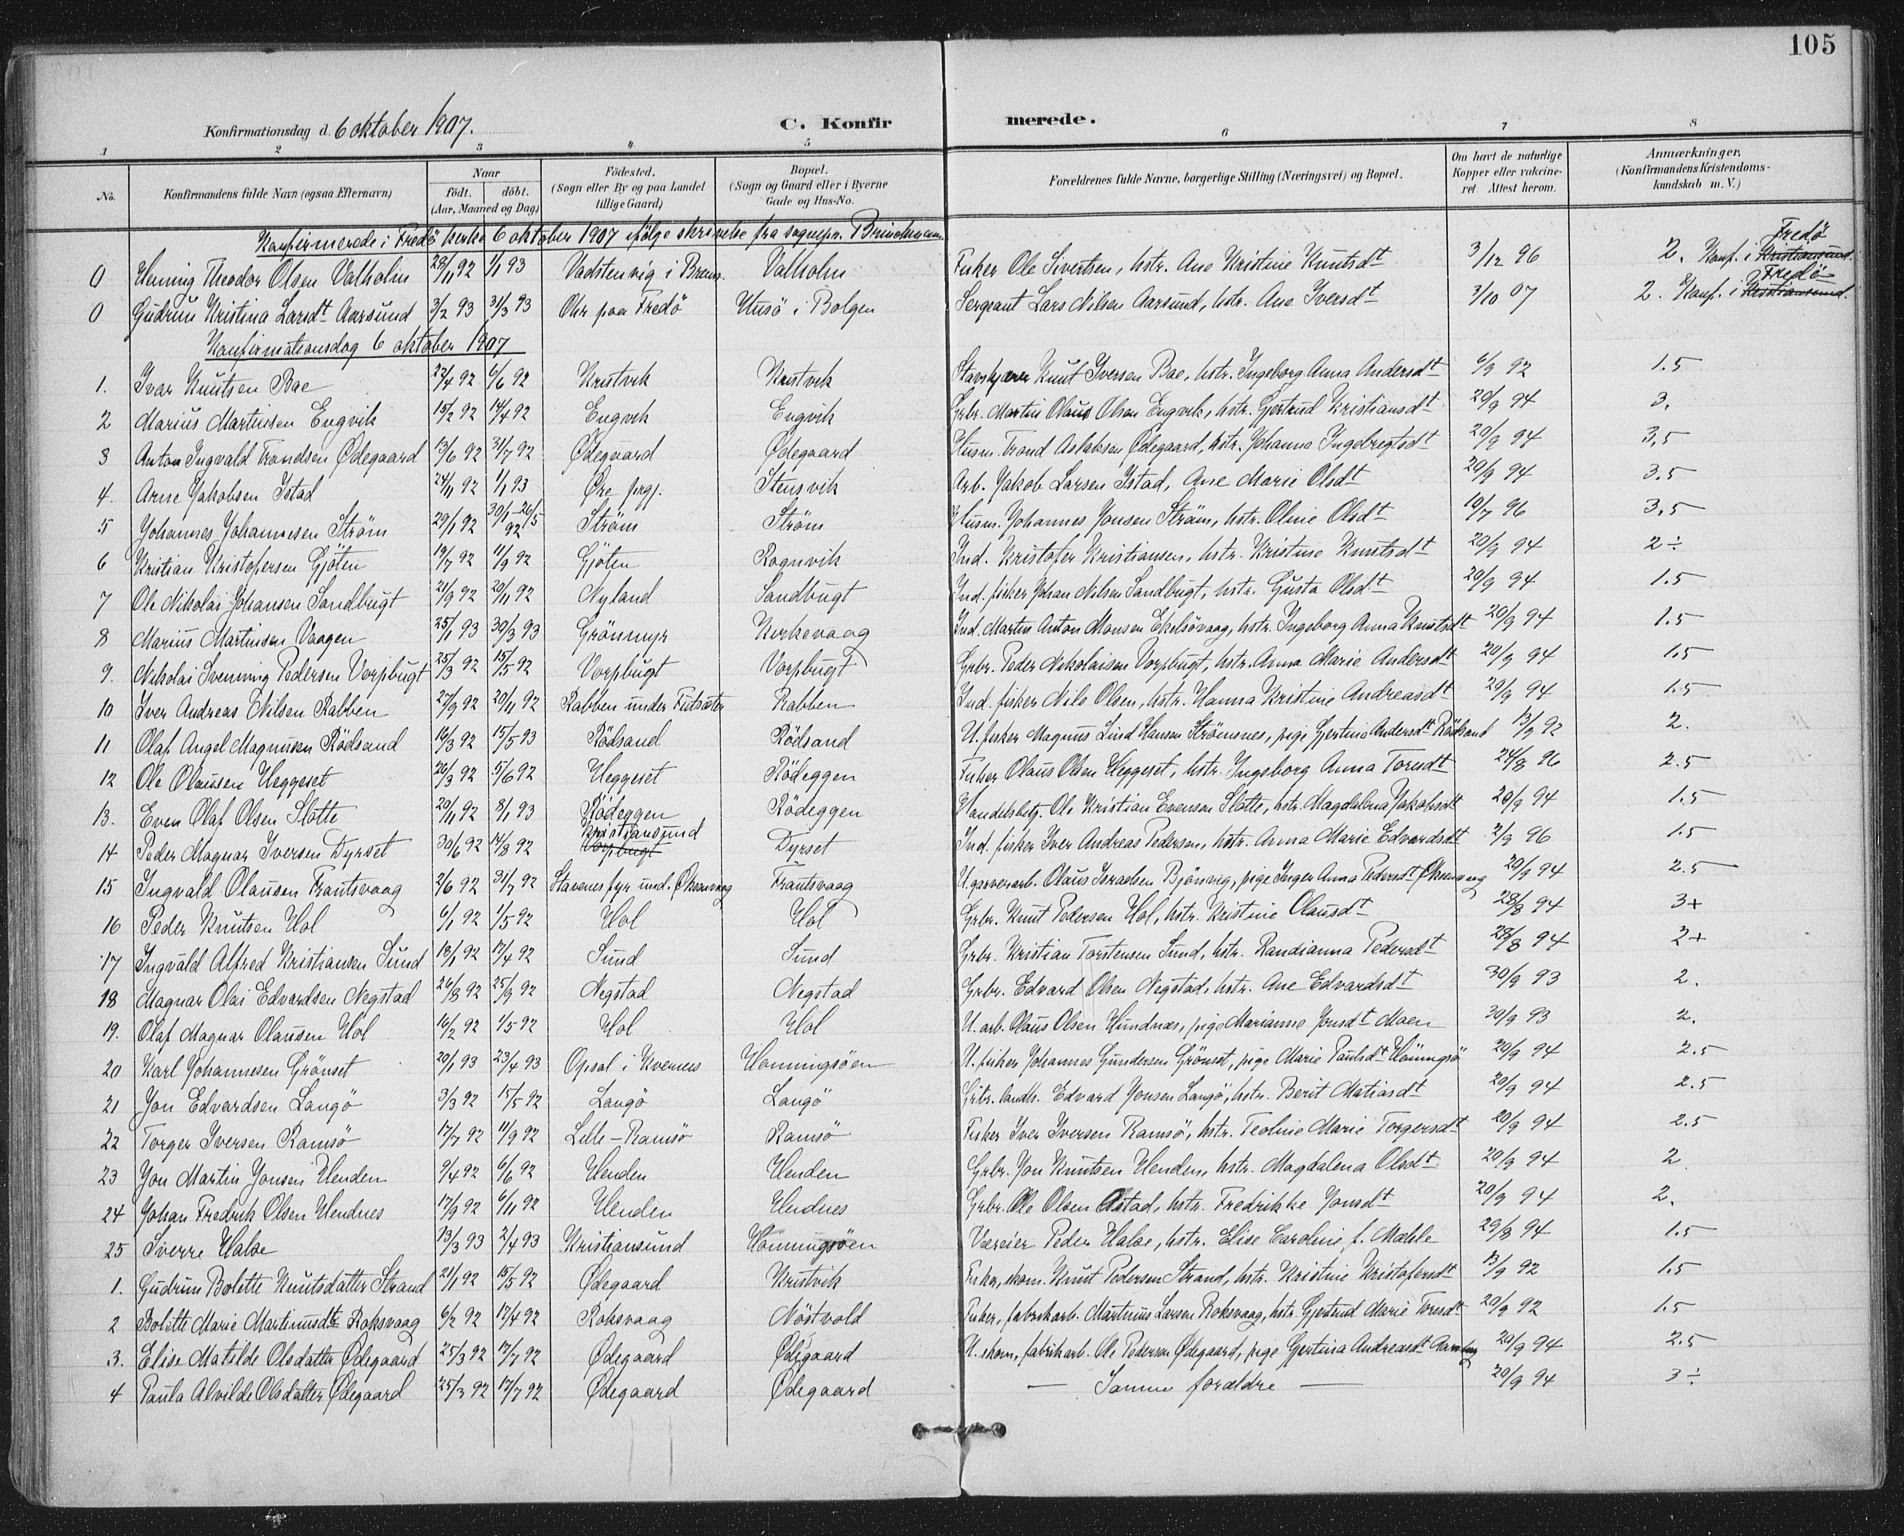 105
Konfirmationsdag d. 6 oktober 1907. C. Konfirmerede.
1 2 3 4 5 6 7 8
No. Konfirmandens fulde Navn (ogsaa Efternavn) Naar født. døbt. (Aar, Maaned og Dag) Fødested. (Sogn eller By og paa Landet tillige Gaard) Bopæl. (Sogn og Gaard eller i Byerne Gade og Hus-No. Forældrenes fulde Navne, borgerlige Stilling (Næringsvei) og Bopæl. Om havt de naturlige Kopper eller vakcineret. Attest herom. Anmærkninger. (Konfirmandens Kristendomskundskab m. V.)
Konfirmerede i Fredö kirke 6 oktober 1907 ifölge skrivelse fra sognepr. Brinchmann
0 Henning Theodor Olsen Valholm 29/11 92 1/1 93 Vadstenvig i Brems. Valholm Fisker Ole Sivertsen, hstr. Ane Kristine Knutsdt 3/12 96 2. Konf. i Kristiansund. Fredö
0 Gudrun Kristina Larsdt Aarsund 3/2 93 31/3 93 Ohr paa Fredö Husö i Bolgen Sergeant Lars Nilsen Aarsund, hstr. Ane Iversdt 3/10 07 2. Konf. i Kristiansund. Fredö
Konfirmationsdag 6 oktober 1907
1. Ivar Knutsen Bae 22/4 92 6/6 92 Kristvik Kristvik Knut Iversen Bae, hstr. Ingeborg Anna Andersdt 6/9 92 1.5
2 Marius Martinsen Engvik 15/2 92 14/4 92 Engvik Engvik Grbr. Martin Olaus Olsen Engvik, hstr. Gjertrud Kristiansdt 20/9 94 3.
3 Anton Ingvald Trondsen Ødegaard 13/6 92 31/7 92 Ødegaard Ødegaard Husm. Trond Aslaksen Ødegaard, hstr. Johanna Ingebregtsdt 20/9 94 3,5
4. Arne Jakobsen Istad 24/11 92 1/1 93 Øre prgj. Stensvik Arb. Jakob Larsen Istad, Ane Marie Olsdt 20/9 94 3.5
5 Johannes Johannesen Ström 29/1 92 30/1-26/5 92 Ström Ström Husm. Johannes Jonsen Ström, hstr. Oline Olsdt 10/7 96 3.5
6 Kristian Kristofersen Gjöten 19/7 92 11/9 92 Gjöten Ragnvik Ind. Kristofer Kristiansen, hstr. Kristine Knutsdt 20/9 94 2÷
7 Ole Nikolai Johansen Sandbugt 21/9 92 20/11 92 Nyland Sandbugt Ind. fisker Johan Nilsen Sandbugt, hstr. Gusta Olsdt 20/9 94 1.5
8 Marius Martinsen Vaagen 25/1 93 30/3 93 Grönmyr Kirkevaag Ind. Martin Anton Monsen Ekelsövaag, hstr. Ingeborg Anna Knutsdt 20/9 94 1.5
9. Nikolai Svenning Pedersen Vorpbugt 25/3 92 15/5 92 Vorpbugt Vorpbugt Grbr. Peder Nikolaisen Vorpbugt, hstr. Anna Marie Andersdt 20/9 94 1.5
10 Iver Andreas Nilsen Rabben 27/9 92 20/11 92 Rabben under Futsæter Rabben Ind. fisker Nils Olsen, hstr. Hanna Kristine Andreasdt 20/9 94 1.5
11 Olaf Angel Magnusen Rödsand 16/3 92 15/5 93 Rödsand Rödsand U. fisker Magnus Lind Hansen Strömsnes, pige Gjertine Andersdt Rödsand 13/9 92 2.
12 Ole Olausen Heggeset 26/3 92 5/6 92 Heggeset Rödeggen Fisker Olaus Olsen Heggeset, hstr. Ingeborg Anna Toresdt 24/8 96 2.5
13. Even Olaf Olsen Slatte 20/11 92 8/1 93 Rödeggen Rödeggen Handelsbetj. Ole Kristian Evensen Slatte, hstr. Magdalena Jakobsdt 20/9 94 1.5
14 Peder Magnar Iversen Dyrset 30/6 92 14/8 92 Kristiansund Vorpbugt Dyrset Ind. fisker Iver Andreas Pedersen, hstr. Anna Marie Edvardsdt 2/3 96 1.5
15 Ingvald Olausen Frantsvaag 2/6 92 31/7 92 Stavnes fyr und. Øksenvaag Frantsvaag U. garverarb. Olaus Israelsen Bjönvig, pige Inger Anna Pedersdt Øksenvaag 20/9 94 2.5
16 Peder Knutsen Hol 6/1 92 1/5 92 Hol Hol Grbr. Knut Pedersen Hol, hstr. Kristine Olausdt 28/8 94 3+
17 Ingvald Alfred Kristiansen Sund 18/1 92 17/4 92 Sund Sund Grbr. Kristian Torstensen Sund, hstr. Randianna Pedersdt 28/8 94 2+
18 Magnar Olai Edvardsen Negstad 26/8 92 25/9 92 Negstad Negstad Grbr. Edvard Olsen Negstad, hstr. Ane Edvardsdt 30/9 93 2.
19. Olaf Magnar Olausen Hol 16/2 92 1/5 92 Hol Hol U. arb. Olaus Olsen Hundnæs, pige Marianne Jonsdt Moen 30/9 93 2.
20 Karl Johannesen Grönset 20/1 93 23/4 93 Opsal i Kvernes Honningsöen U. fisker Johannes Gundersen Grönset, pige Marie Paulsdt Honningsö 20/9 94 2.5
21 Jon Edvardsen Langö 3/3 92 15/5 92 Langö Langö Grbr. landh. Edvard Jonsen Langö, hstr. Berit Matiasdt 20/9 94 2.5
22 Torger Iversen Ramsö 17/7 92 11/9 92 Lille-Ramsö Ramsö Fisker Iver Iversen Ramsö, hstr. Teoline Marie Torgersdt 20/9 94 2.5
23 Jon Martin Jonsen Henden 9/4 92 6/6 92 Henden Henden Grbr. Jon Knutsen Henden, hstr. Magdalena Olsdt 20/9 94 2
24 Johan Fredrik Olsen Hendnes 17/9 92 6/11 92 Henden Hendnes Grbr. Ole Olsen Astad, hstr. Fredrikke Jonsdt 20/9 94 2.
25 Sverre Halse 13/3 93 2/4 93 Kristiansund Honningsöen Væreier Peder Halse, hstr. Elise Caroline f. Mæhle 29/8 94 1.5
1. Gudrun Bolette Knutsdatter Strand 21/1 92 15/5 92 Ødegaard Kristvik Fisker, skom. Knut Pedersen Strand, hstr. Kristine Kristofersdt 13/9 92 1.5
2 Bolette Marie Martinusdtr Roksvaag 6/2 92 17/4 92 Roksvaag Nöstvold Fisker, fabrikarb. Martinus Larsen Roksvaag, hstr. Gjertrud Marie Toresdt 20/9 92 1.5
3. Elise Matilde Olsdatter Ødegaard 25/3 92 17/7 92 Ødegaard Ødegaard U. skom, fabrikarb. Ole Pedersen Ødegaard, pige Gjertina Andreasdt 20/9 94 2.5
4 Paula Alvilde Olsdatter Ødegaard 25/3 92 17/7 92 Ødegaard Ødegaard — Samme forældre — 20/9 94 3÷